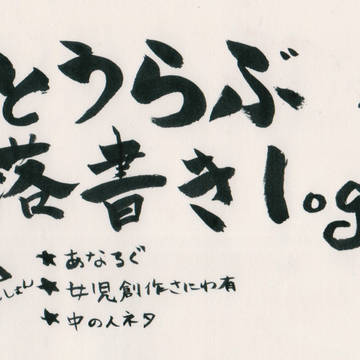 とうらぶ
落書きlog
★あなろぐ
★女児創作さにわ有
★中の人ネタ